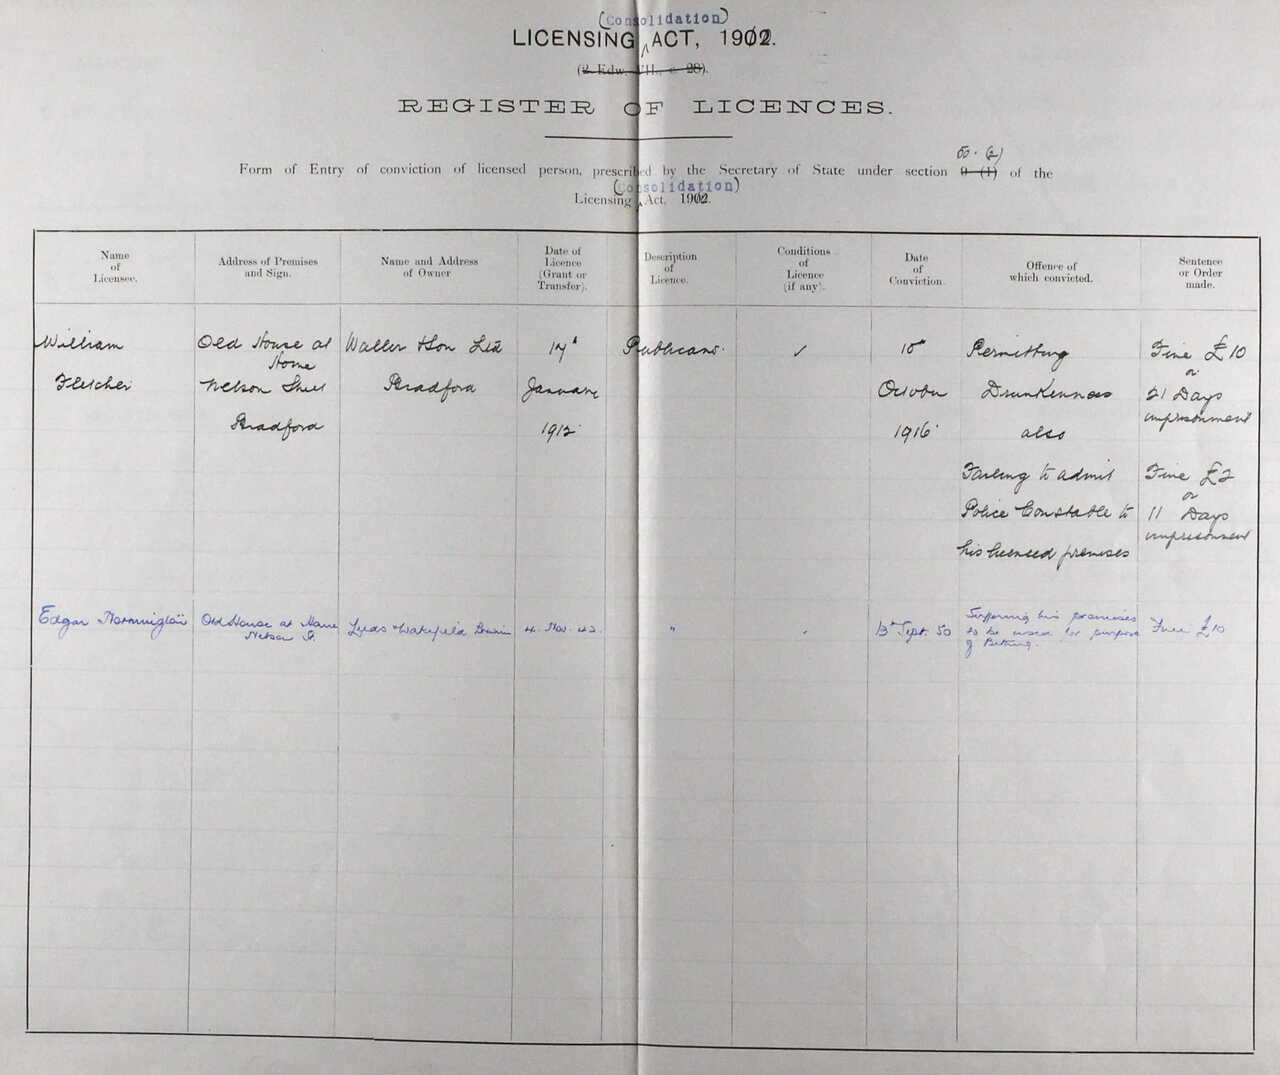 (Consolidation)
LICENSING ACT, 1902.
(2 Edw. VII., c. 28).
REGISTER OF LICENCES.
50. (2)
Form of Entry of conviction of licensed person, prescribed by the Secretary of State under section 9 (1) of the
(Consolidation)
Licensing Act, 1902.
Name of Licensee.
Address of Premises and Sign.
Name and Address of Owner
Date of Licence (Grant or Transfer).
Description of Licence.
Conditions of Licence (if any).
Date of Conviction.
Offence of which convicted.
Sentence or Order made.
William Fletcher
Old House at Home
Nelson Street
Bradford
Waller & Son Ltd
Bradford
17th
January
1912
Publicans
✓
10th
October
1916
Permitting
Drunkenness
also
Failing to admit
Police Constable to
his licensed premises
Fine £10
or
21 Days
imprisonment
Fine £2
or
11 Days
imprisonment
Edgar Normington
Old House at Home
Nelson St.
Leeds & Wakefield
4. Nov. 42
"
13th Sept. 50
his premises
to be used for purpose
of Betting.
Fine £10